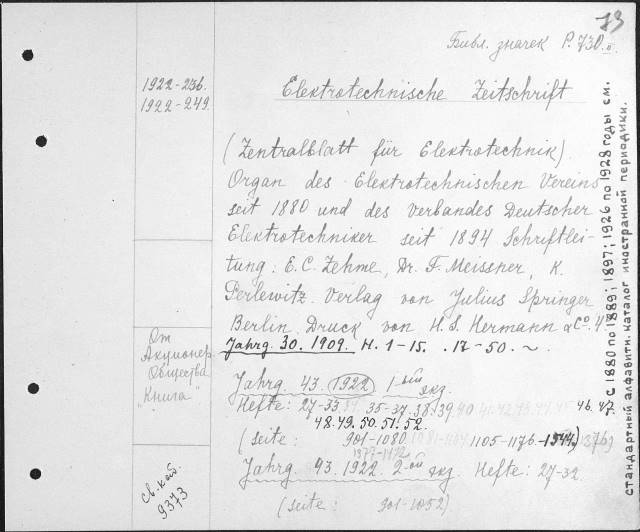 73
Библ. значек P. 730.
1922-236.
1922-249.
Elektrotechnische Zeitschrift
(Zentralblatt für Elektrotechnik)
Organ des Elektrotechnischen Vereins
seit 1880 und des Verbandes Deutscher
Elektrotechniker seit 1894 Schriftlei-
tung: E. C. Zehme, Dr. F. Meissner, K.
Perlewitz. Verlag von Julius Springer
Berlin. Druck von H. S. Hermann & Co. 4°
Jahrg. 30. 1909. H. 1-15. 17-50. ~
От
Акционер.
Общества
"Книга"
Jahrg 43. 1922 1-ый экз.
Hefte: 27-33. 35-37. 38. 39. 40 41. 42. 43. 44. 45 46. 47.
48. 49. 50. 51. 52.
(seite: 901-1080 1105-1176. -1544)
Jahrg. 43. 1922. 2-ой экз. Hefte: 27-32.
(seite: 901-1052)
св. каб.
9373
с 1880 по 1889; 1897; 1926 по 1928 годы см.
стандартный алфавитн. каталог иностранной периодики.